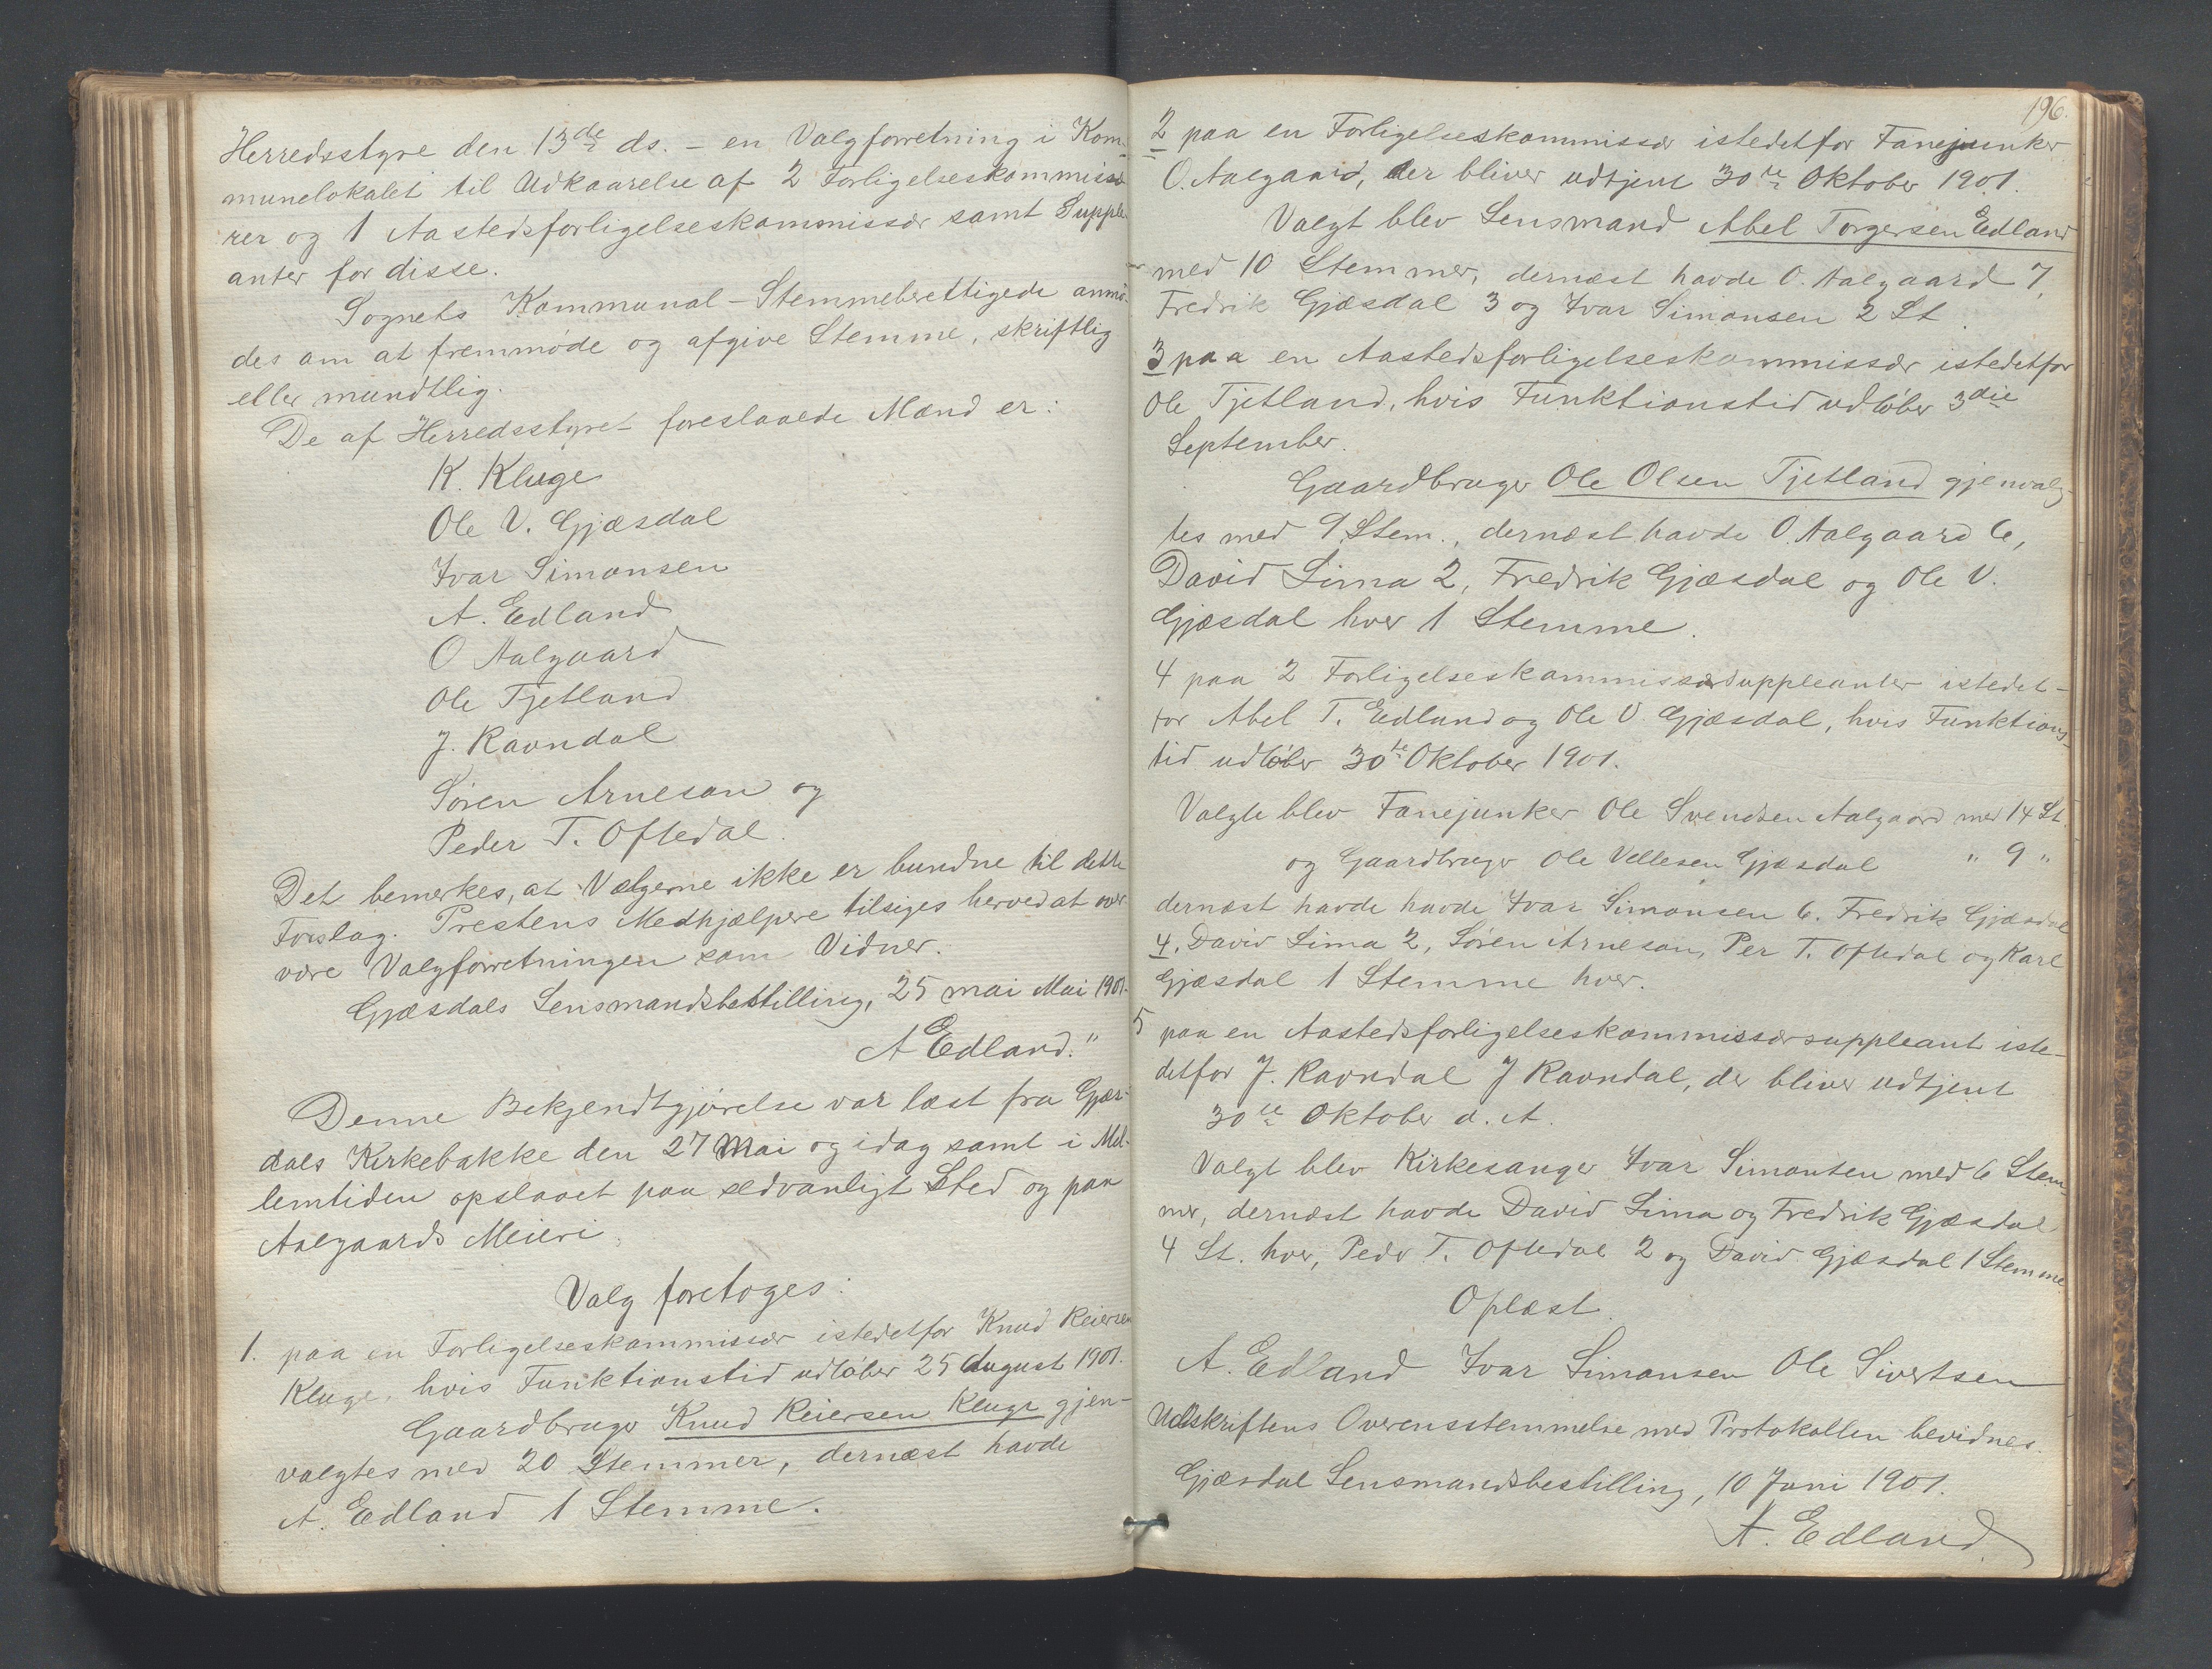 Herredsstyre den 13de ds. – en Valgforretning i Kom-
munelokalet til Udkaarelse af 2 Forligelseskommissæ-
rer og 1 Aastedsforligelseskommissær samt Supple-
anter for disse.
Sognets Kommunal-Stemmeberettigede anmo-
des om at fremmøde og afgive Stemme, skriftlig
eller mundtlig.
De af Herredsstyret foreslaaede Mænd er:
K. Kluge
Ole V. Gjæsdal
Ivar Simonsen
A. Edland
O Aalgaard
Ole Tjetland
J. Ravndal
Søren Arneson og
Peder T. Oftedal.
Det bemerkes, at Vælgerne ikke er bundne til dette
Forslag. Prestens Medhjælpere tilsiges herved at over-
være Valgforretningen som Vidner.
Gjæsdals Lensmandsbestilling, 25 mai Mai 1901.
A Edland."
Denne Bekjendtgjørelse var læst fra Gjæs-
dals Kirkebakke den 27 Mai og idag samt i Mel-
lemtiden opslaaet paa sedvanligt Sted og paa
Aalgaards Meieri.
Valg foretoges:
1. paa en Forligelseskommissær istedetfor Knud Reiersen
Kluge, hvis Funktionstid udløber 25 August 1901.
Gaardbruger Knud Reiersen Kluge gjen-
valgtes med 20 Stemmer, dernæst havde
A. Edland 1 Stemme.
196.
2 paa en Forligelseskommissær istedetfor Fanejunker
O. Aalgaard, der bliver udtjent 30te Oktober 1901.
Valgt blev Lensmand Abel Torgersen Edland
med 10 Stemmer, dernæst havde O. Aalgaard 7,
Fredrik Gjæsdal 3 og Ivar Simonsen 2 St.
3 paa en Aastedsforligelseskommissær istedetfor
Ole Tjetland, hvis Funktionstid udløber 3die
September.
Gaardbruger Ole Olsen Tjetland gjenvalg-
tes med 9 Stem., dernæst havde O. Aalgaard 6,
David Lima 2, Fredrik Gjæsdal og Ole V.
Gjæsdal hver 1 Stemme.
4 paa 2 Forligelseskommissærsuppleanter istedet-
for Abel T. Edland og Ole V. Gjæsdal, hvis Funktions-
tid udløber 30te Oktober 1901.
Valgte blev Fanejunker Ole Svendsen Aalgaard med 14 St.
og Gaardbruger Ole Vellesen Gjæsdal " 9 "
dernæst havde havde Ivar Simonsen 6. Fredrik Gjæsdal
4. David Lima 2, Søren Arneson, Per T. Oftedal og Karl
Gjæsdal 1 Stemme hver.
5 paa en Aastedsforligelseskommissærsuppleant iste-
detfor J. Ravndal J Ravndal, der bliver udtjent
30te Oktober d. A.
Valgt blev Kirkesanger Ivar Simonsen med 6 Stem-
mer, dernæst havde David Lima og Fredrik Gjæsdal
4 St. hver, Peder T. Oftedal 2 og David Gjæsdal 1 Stemme.
Oplæst.
A. Edland Ivar Simonsen Ole Sivertsen
Udskriftens Overensstemmelse med Protokollen bevidnes.
Gjæsdal Lensmandsbestilling, 10 Juni 1901.
A. Edland.